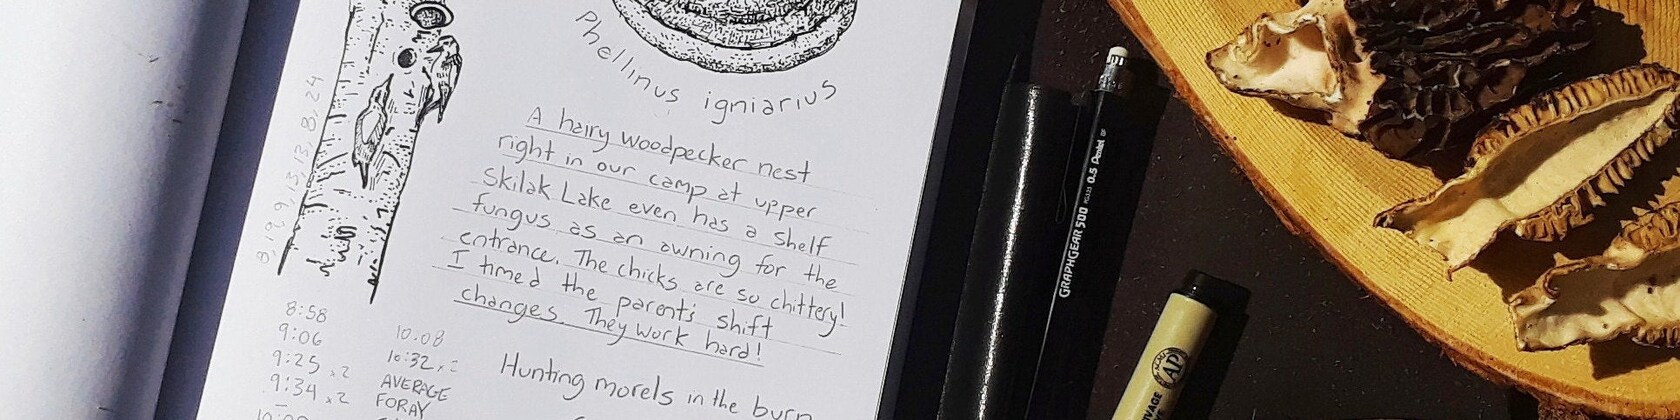 Phellinus igniarius
A hairy woodpecker nest
right in our camp at upper
Skilak Lake even has a shelf
fungus as an awning for the
entrance. The chicks are so chittery!
I timed the parent's shift
changes. They work hard!
Hunting morels in the burn
8:58
9:06
9:25 x2
9:34 x2
10:08
10:32 x2
AVERAGE
FORAY
GRAPHGEAR 500 0.5 Pentel
AP